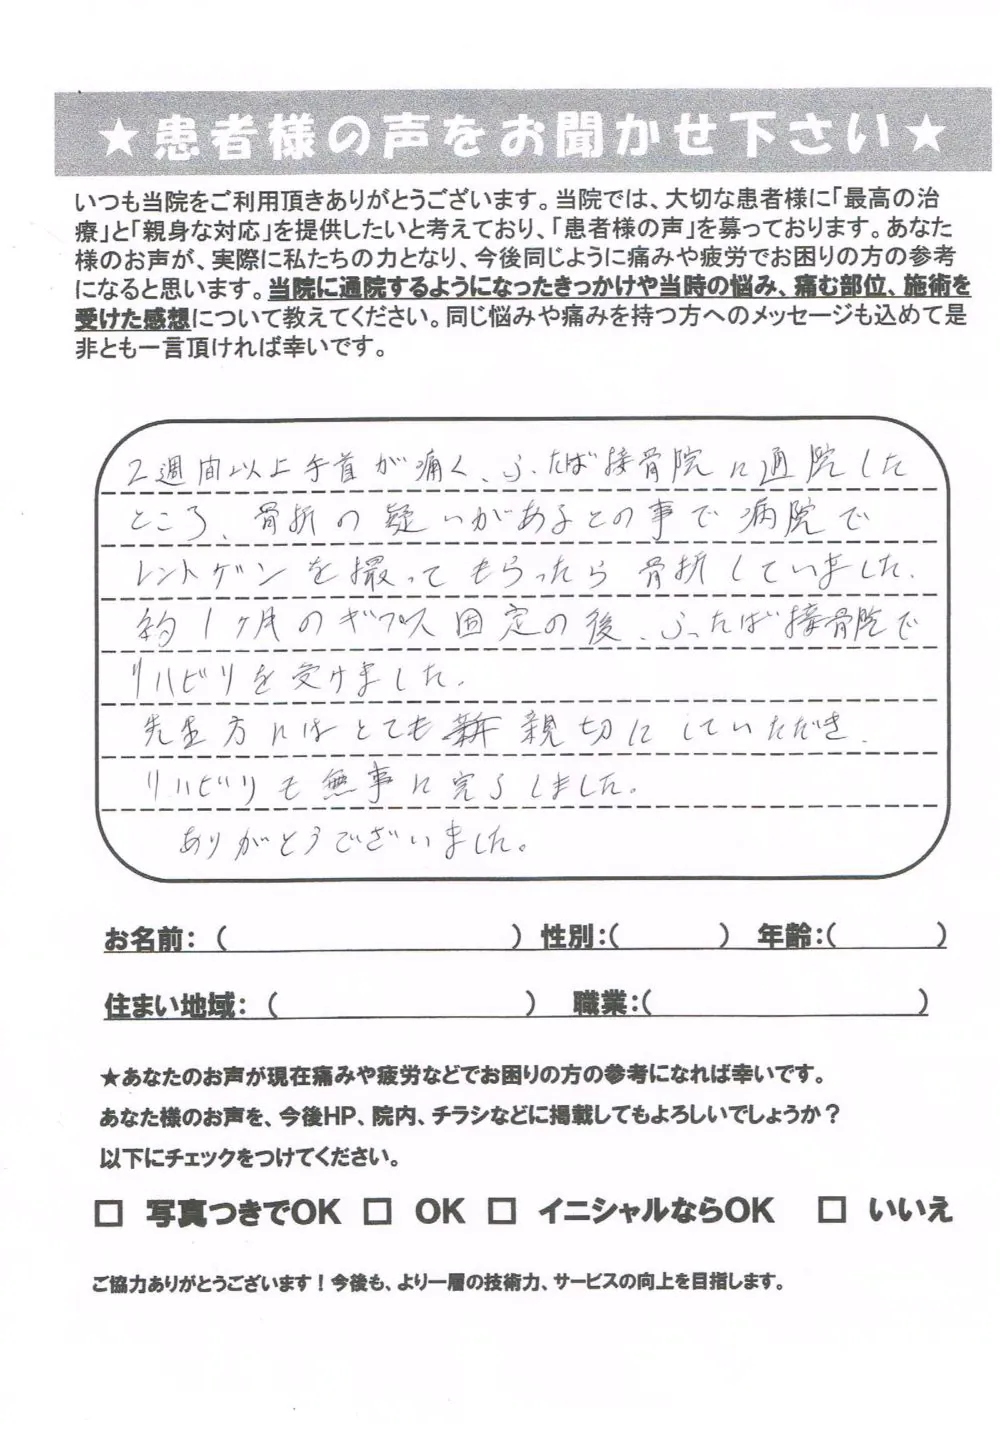 ★患者様の声をお聞かせ下さい★
いつも当院をご利用頂きありがとうございます。当院では、大切な患者様に「最高の治
療」と「親身な対応」を提供したいと考えており、「患者様の声」を募っております。あなた
様のお声が、実際に私たちの力となり、今後同じように痛みや疲労でお困りの方の参考
になると思います。当院に通院するようになったきっかけや当時の悩み、痛む部位、施術を
受けた感想について教えてください。同じ悩みや痛みを持つ方へのメッセージも込めて是
非とも一言頂ければ幸いです。
2週間以上手首が痛く、ふたば接骨院に通院した
ところ、骨折の疑いがあるとの事で病院で
レントゲンを撮ってもらったら骨折していました.
約1ヶ月のギプス固定の後、ふたば接骨院で
リハビリを受けました.
先生方にはとても親切にしていただき.
リハビリも無事に完了しました.
ありがとうございました。
お名前：（ ） 性別：（ ） 年齢：（ ）
住まい地域：（ ） 職業：（ ）
★あなたのお声が現在痛みや疲労などでお困りの方の参考になれば幸いです。
あなた様のお声を、今後HP、院内、チラシなどに掲載してもよろしいでしょうか？
以下にチェックをつけてください。
□ 写真つきでOK □ OK □ イニシャルならOK □ いいえ
ご協力ありがとうございます！今後も、より一層の技術力、サービスの向上を目指します。